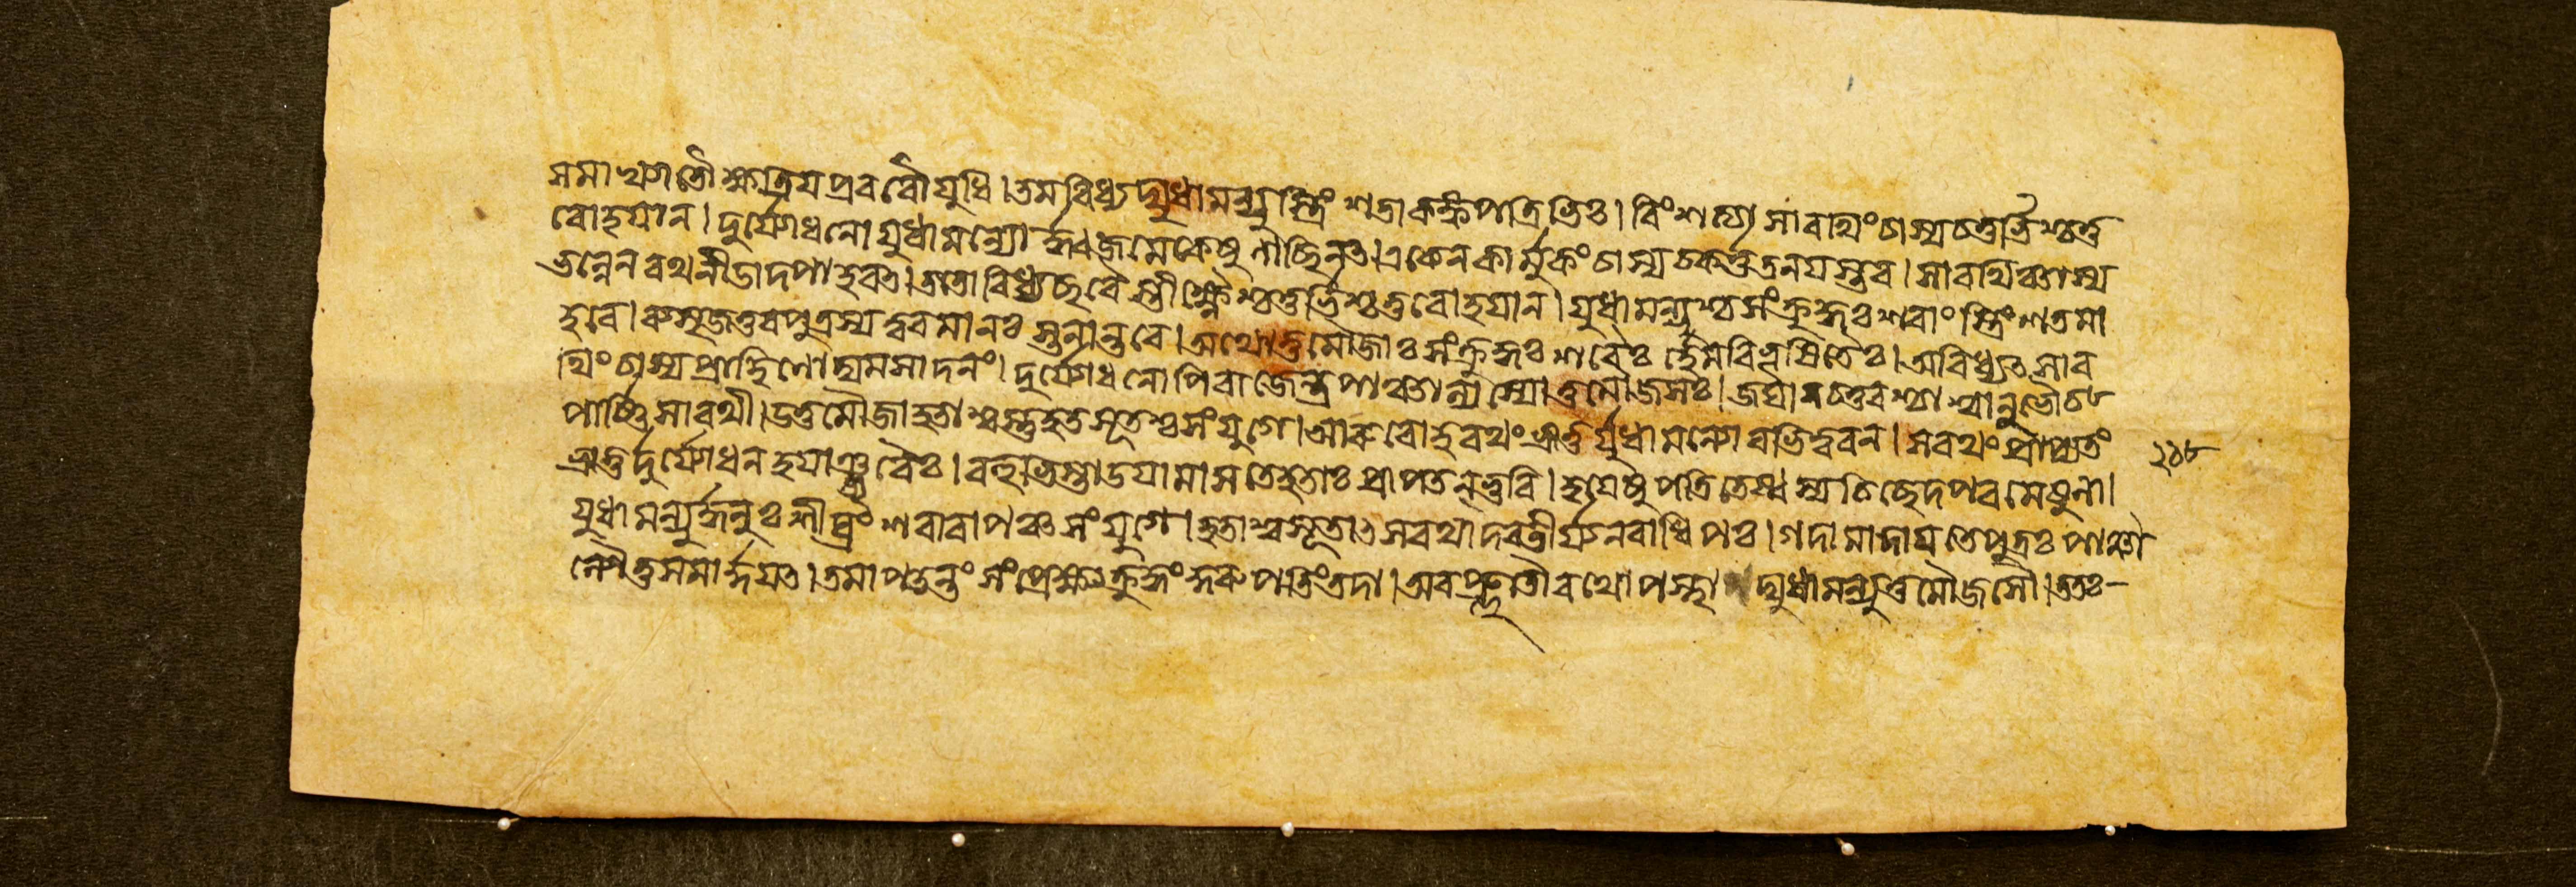 সমাখ্যাতৌ ক্ষত্রিযপ্রবরৌ যুধি। তমবিধ্যদ্যুধামন্যুস্ত্রিংশতা কঙ্কপত্রিভিঃ। বিংশত্যা সারথিং চাস্য চতুর্ভিশ্চতু
রো হযান। দুর্যোধনো যুধামন্যোর্ধ্বজমেকেষুণাচ্ছিনৎ। একেন কার্মুকং চাস্য চকর্ত্ত তনযস্তব। সারথিঞ্চাস্য
ভল্লেন রথনীডাদপাহরৎ। ততোবিধ্যচ্ছরৈস্তীক্ষ্ণৈশ্চতুর্ভিশ্চতুরো হযান। যুধামন্যুশ্চ সংক্রুদ্ধঃ শরাংস্ত্রিংশতমা
হবে। ব্যসৃজত্তব পুত্রস্য ত্বরমানঃ স্তনান্তরে। অথোত্তমৌজাঃ সংক্রুদ্ধঃ শরৈঃ র্হেমবিভূষিতৈঃ। অবিধ্যৎ সার
থিং চাস্য প্রাহিণোদ্যমসাদনং। দুর্যোধনোপি রাজেন্দ্র পাঞ্চাল্যস্যোত্তমৌজসঃ। জঘান চতুরশ্চাশ্বানুভৌ চ
পার্ষ্ণিসারথী। উত্তমৌজা হতাশ্বস্তু হতসূতশ্চ সংযুগে। আরুরোহ রথং ভ্রাতুর্যুধামন্যোরভিত্বরন। স রথং প্রাপ্য তং
২১৮
ভ্রাতুর্দুর্যোধনহযাঞ্ছরৈঃ। বহুভিস্তাডযামাস তে হতাঃ প্রাপতন্ভুবি। হযেষু পতিতেষ্বস্য চিচ্ছেদ পরমেষুণা।
যুধামন্যুর্দ্ধনুঃ শীঘ্রং শরাবাপঞ্চ সংযুগে। হতাশ্বসূতাৎ স রথাদবতীর্য নরাধিপঃ। গদামাদায তে পুত্রঃ পাঞ্চা
ল্যৌ তু সমার্দ্দযৎ। তমাপতন্তং সংপ্রেক্ষ্য ক্রুদ্ধং কুরুপতিং তদা। অবপ্লুতৌ রথোপস্থাদ্যুধামন্যুত্তমৌজসৌ। ততঃ-